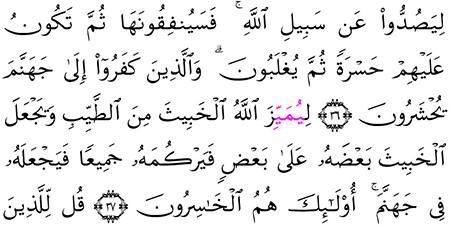 لِيَصُدُّوا۟ عَن سَبِيلِ ٱللَّهِ ۚ فَسَيُنفِقُونَهَا ثُمَّ تَكُونُ
عَلَيْهِمْ حَسْرَةً ثُمَّ يُغْلَبُونَ ۗ وَٱلَّذِينَ كَفَرُوٓا۟ إِلَىٰ جَهَنَّمَ
يُحْشَرُونَ ٣٦ لِيُمَيِّزَ ٱللَّهُ ٱلْخَبِيثَ مِنَ ٱلطَّيِّبِ وَيَجْعَلَ
ٱلْخَبِيثَ بَعْضَهُۥ عَلَىٰ بَعْضٍ فَيَرْكُمَهُۥ جَمِيعًا فَيَجْعَلَهُۥ
فِى جَهَنَّمَ ۚ أُو۟لَٰٓئِكَ هُمُ ٱلْخَٰسِرُونَ ٣٧ قُل لِّلَّذِينَ